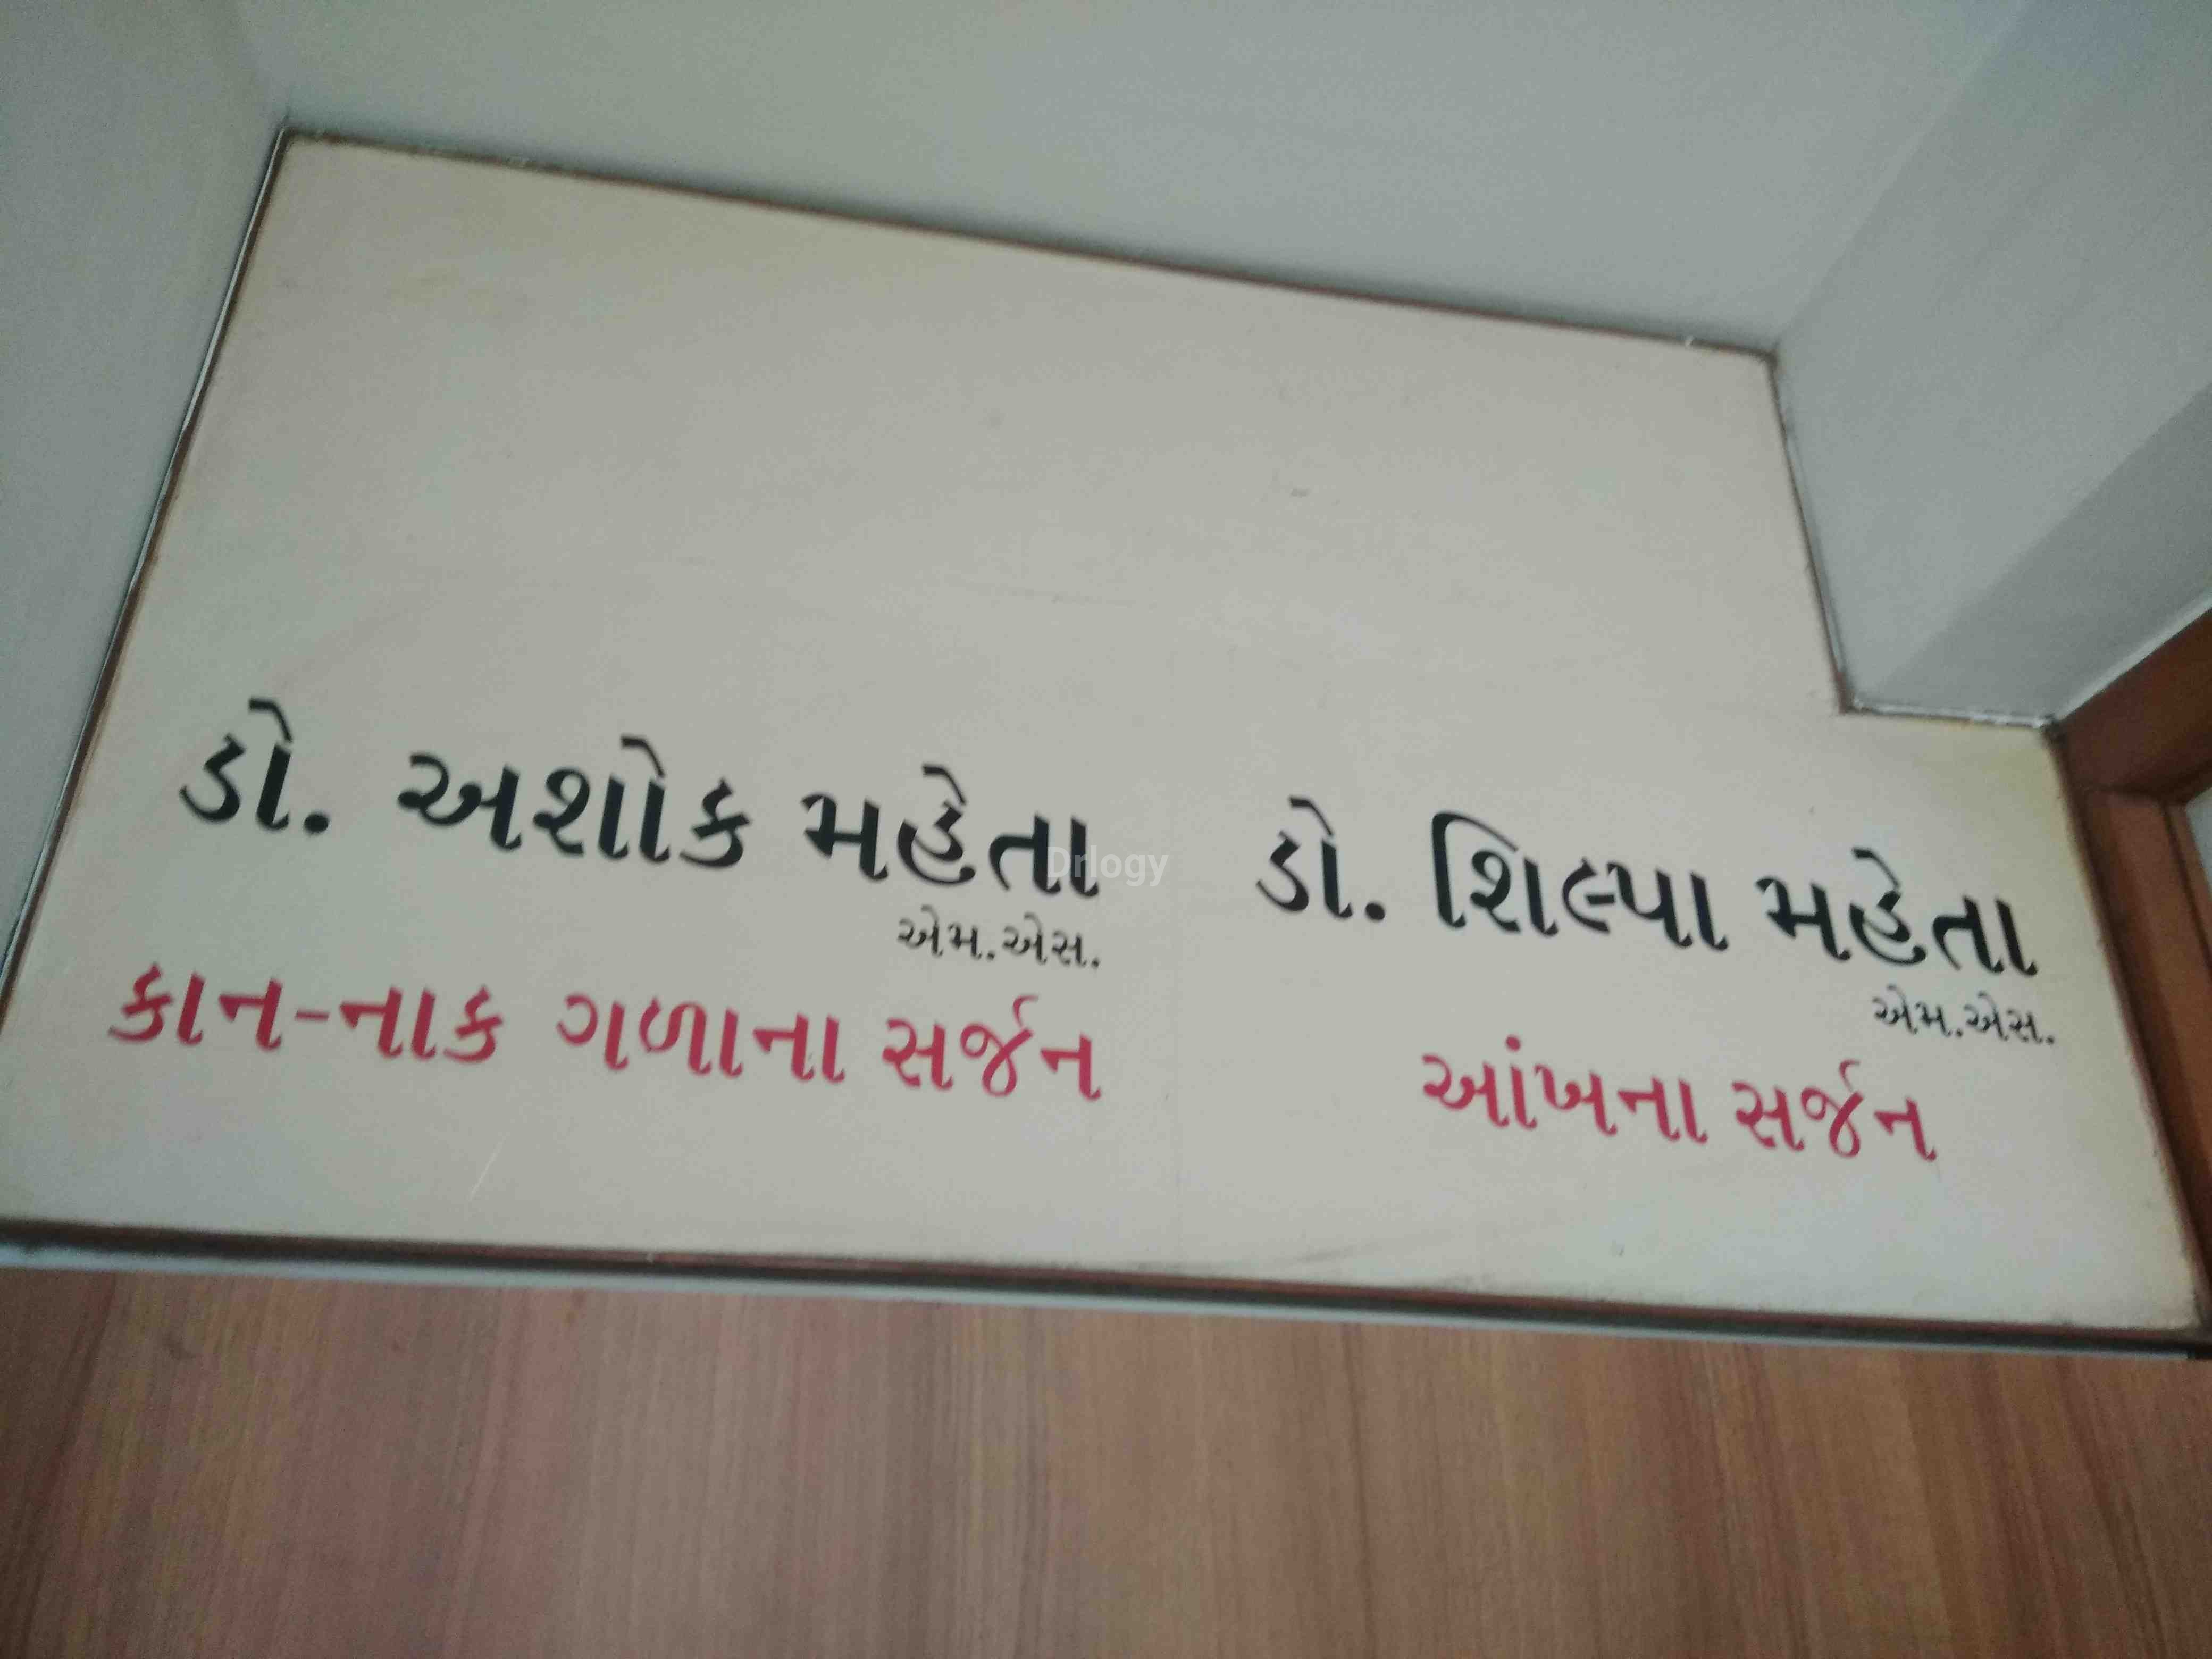 ડો. અશોક મહેતા
એમ.એસ.
કાન-નાક ગળાના સર્જન
ડો. શિલ્પા મહેતા
એમ.એસ.
આંખના સર્જન
Drlogy